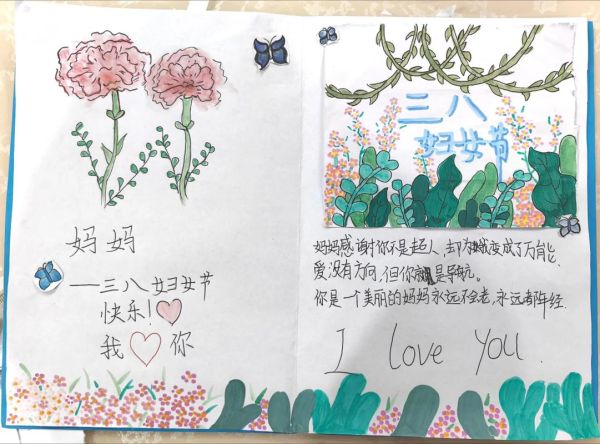 妈妈
—三八妇女节
快乐!
我 你
三八
妇女节
妈妈感谢你不是超人,却为我变成了万能.
爱没有方向,但你就是导航。
你是一个美丽的妈妈永远不会老,永远都年轻.
I love you.